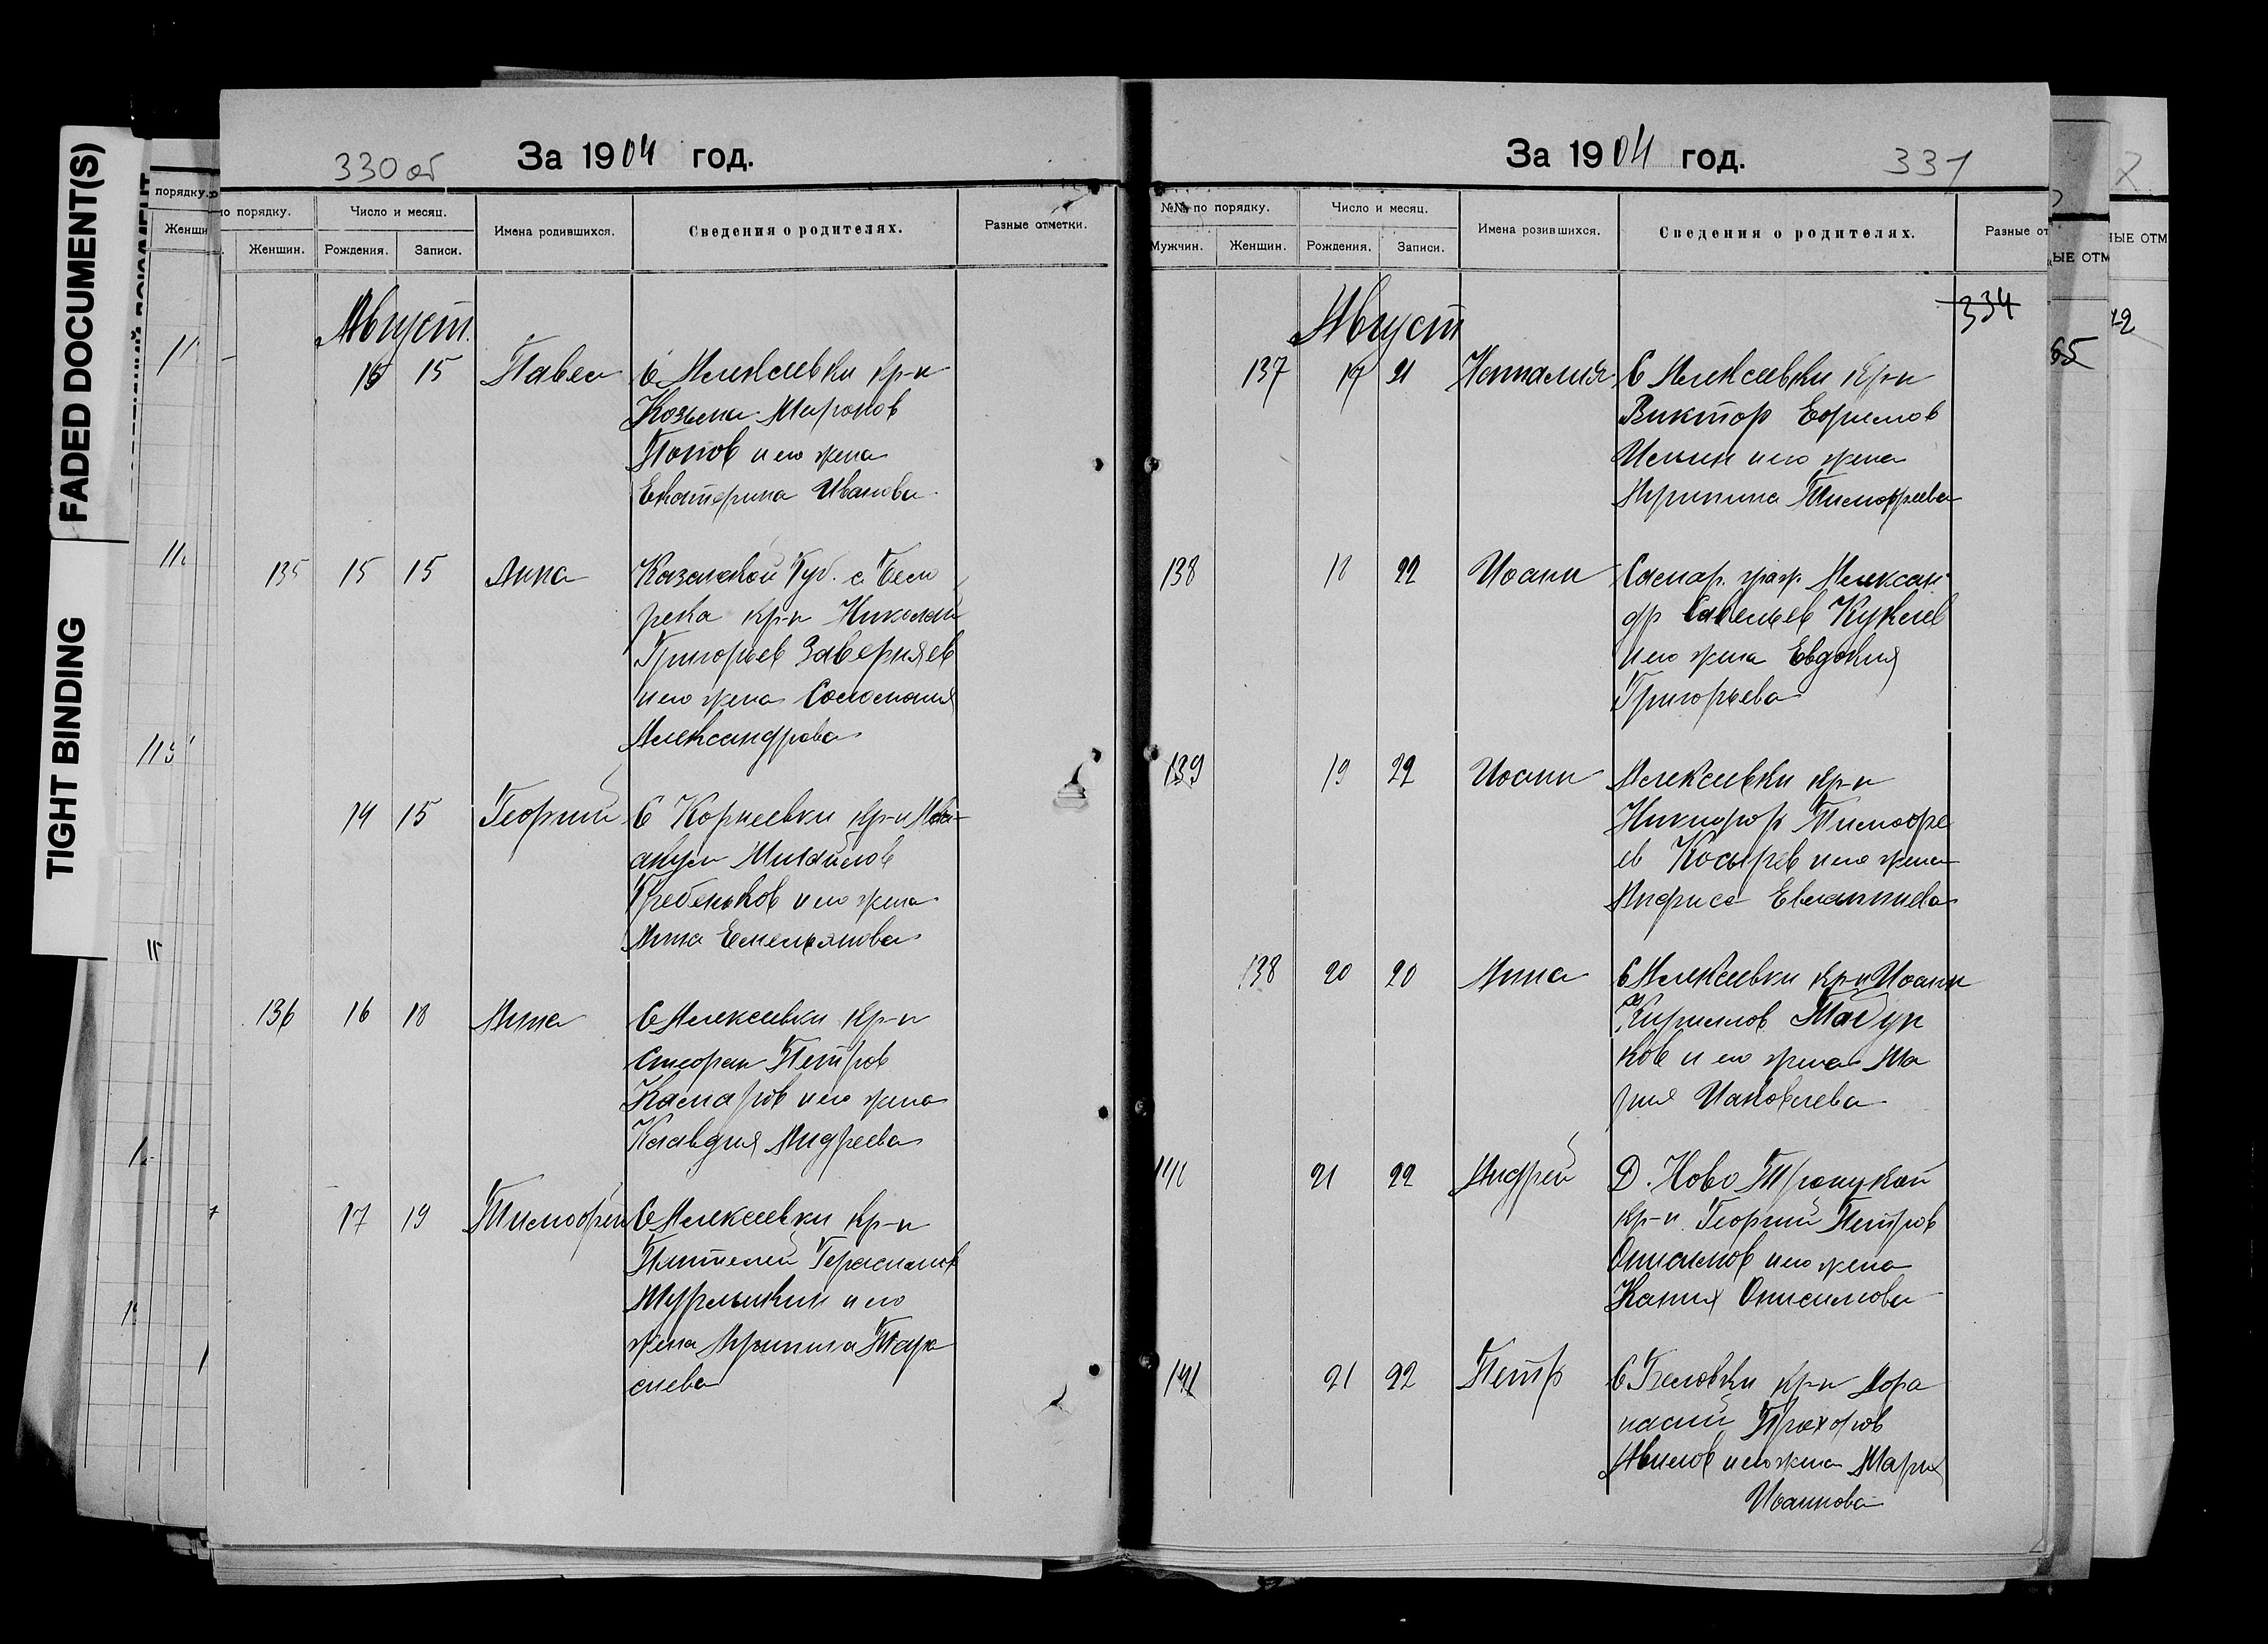 FADED DOCUMENT(S)
TIGHT BINDING
330 об
За 1904 год.
по порядку.
Число и месяц.
Имена родившихся.
Сведения о родителях.
Разные отметки.
Женщин.
Рождения.
Записи.
Август.
15 15 Павел С Алексеевки кр-н
Козьма Миронов
Попов и его жена
Екатерина Иванова
135 15 15 Анна Казанской Губ. с.
река кр-н Николай
Григорьев Заверняев
и его жена Соломония
Александрова
14 15 Георгий С Корнеевки кр-н
Михайлов
Гребеньков и его жена
Анна Емельянова
136 16 18 Анна С Алексеевки кр-н
Стефан Петров
Камаров и его жена
Клавдия Андреева
17 19 Тимофей С Алексеевки кр-н
Пантелей Герасимов
Мурлыкин и его
жена Агрипина Тара
сиева
За 1904 год.
331
№№ по порядку.
Число и месяц.
Имена розившихся.
Сведения о родителях.
Разные от
Мужчин.
Женщин.
Рождения.
Записи.
334
Август
137 19 21 Наталия С Алексеевки кр-н
Виктор Ефимов
Ильин и его жена
Агрипина Тимофеева
138 18 22 Иоанн Самар. граж. Алексан
др Савельев Куклев
и его жена Евдокия
Григорьева
139 19 22 Иоанн Алексеевки кр-н
Никифор Тимофе
ев Косырев и его жена
Анфиса Евлампиева
138 20 20 Анна С Алексеевки кр-н Иоанн
Кириллов Табун
ков и его жена Ма
рия Иаковлева
21 22 Андрей Д. Ново Троицкой
кр-н Георгий Петров
и его жена
Ксения Онисимова
141 21 22 Петр С Беловки кр-н Афа
насий Прохоров
Авилов и его жена Мария
Иоаннова